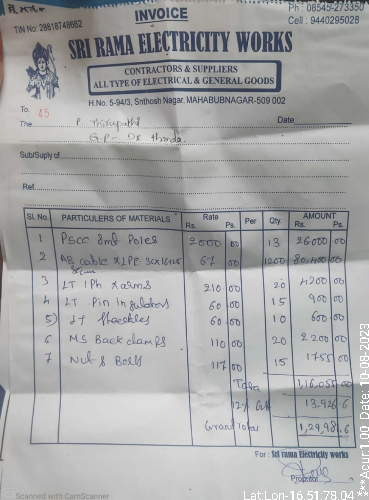 INVOICE
Ph : 08545-273350
TIN No: 28618748662
Cell : 9440295028
SRI RAMA ELECTRICITY WORKS
CONTRACTORS & SUPPLIERS
ALL TYPE OF ELECTRICAL & GENERAL GOODS
H.No. 5-94/3, Snthosh Nagar, MAHABUBNAGAR-509 002
To. 45
The P. Thirupathi Date
G.P- DR thanda
Sub/Suply of
Ref.
Sl. No. PARTICULERS OF MATERIALS Rate Rs. Ps. Per Qty. AMOUNT Rs. Ps.
1 Pscc 8mt Poles 2000 00 13 26000 00
2 AB cable XLPE 3CX16+25 67 1200 80400 00
3 LT 1Ph x arms 210 00 20 4200 00
4 LT Pin insulators 60.00 15 900 00
5) LT Shackles 60.00 10 600 00
6 MS Back clamps 110 00 20 2200 00
7 Nuts & Bolts 117 00 15 1755 00
Total 1,16,055 00
12% 13,926.6
Grand Total 1,29,981.6
For : Sri rama Electricity works
Proprietor
Scanned with CamScanner
Lat:Lon-16.51:78.04
**Acur:1.00 Date: 10-08-2023